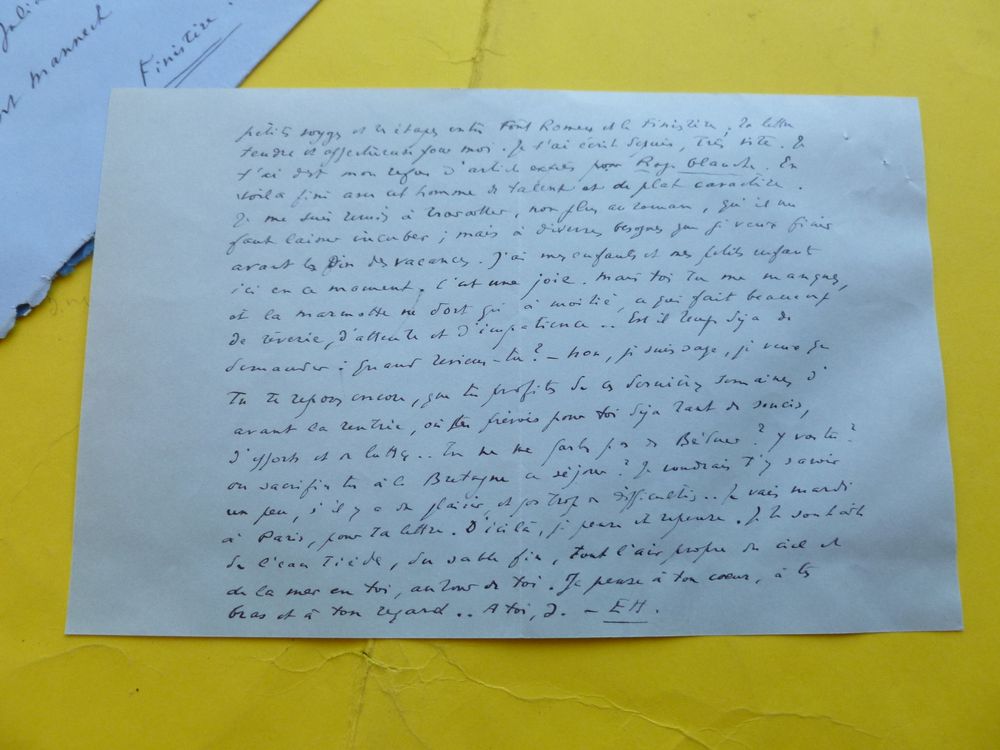 Julia
manneck
Finistère
petits voyages et tes étapes entre Font Romeu et le Finistère, ta lettre
tendre et affectueuse pour moi. Je t'ai écrit depuis, très vite. Je
t'ai dit mon refus d'article exprès pour Roger Blanche. En
voilà fini avec cet homme de talent et de plat caractère.
Je me suis remis à travailler, non plus au roman, qu'il me
faut laisser incuber ; mais à diverses besognes que je veux finir
avant la fin des vacances. J'ai mes enfants et mes petits enfants
ici en ce moment. C'est une joie. Mais toi tu me manques,
et la marmotte ne dort qu'à moitié, ce qui fait beaucoup
de rêverie, d'attente et d'impatience .. Est-il temps déjà de
demander : quand reviens-tu ? – Non, je suis sage, je veux que
tu te reposes encore, que tu profites de ces dernières semaines d'
avant la rentrée, où tu prévois pour toi déjà tant de soucis,
d'efforts et de luttes .. Tu ne me parles pas de ? Y vas tu ?
ou sacrifies tu à la Bretagne ce séjour ? Je voudrais t'y savoir
un peu, s'il y a du plaisir, et pas trop de difficultés .. Je vais mardi
à Paris, pour ta lettre. D'ici là, je pense et repense. Je te souhaite
de l'eau tiède, du sable fin, tout l'air propre du ciel et
de la mer en toi, autour de toi. Je pense à ton cœur, à tes
bras et à ton regard .. A toi, J. – EH.